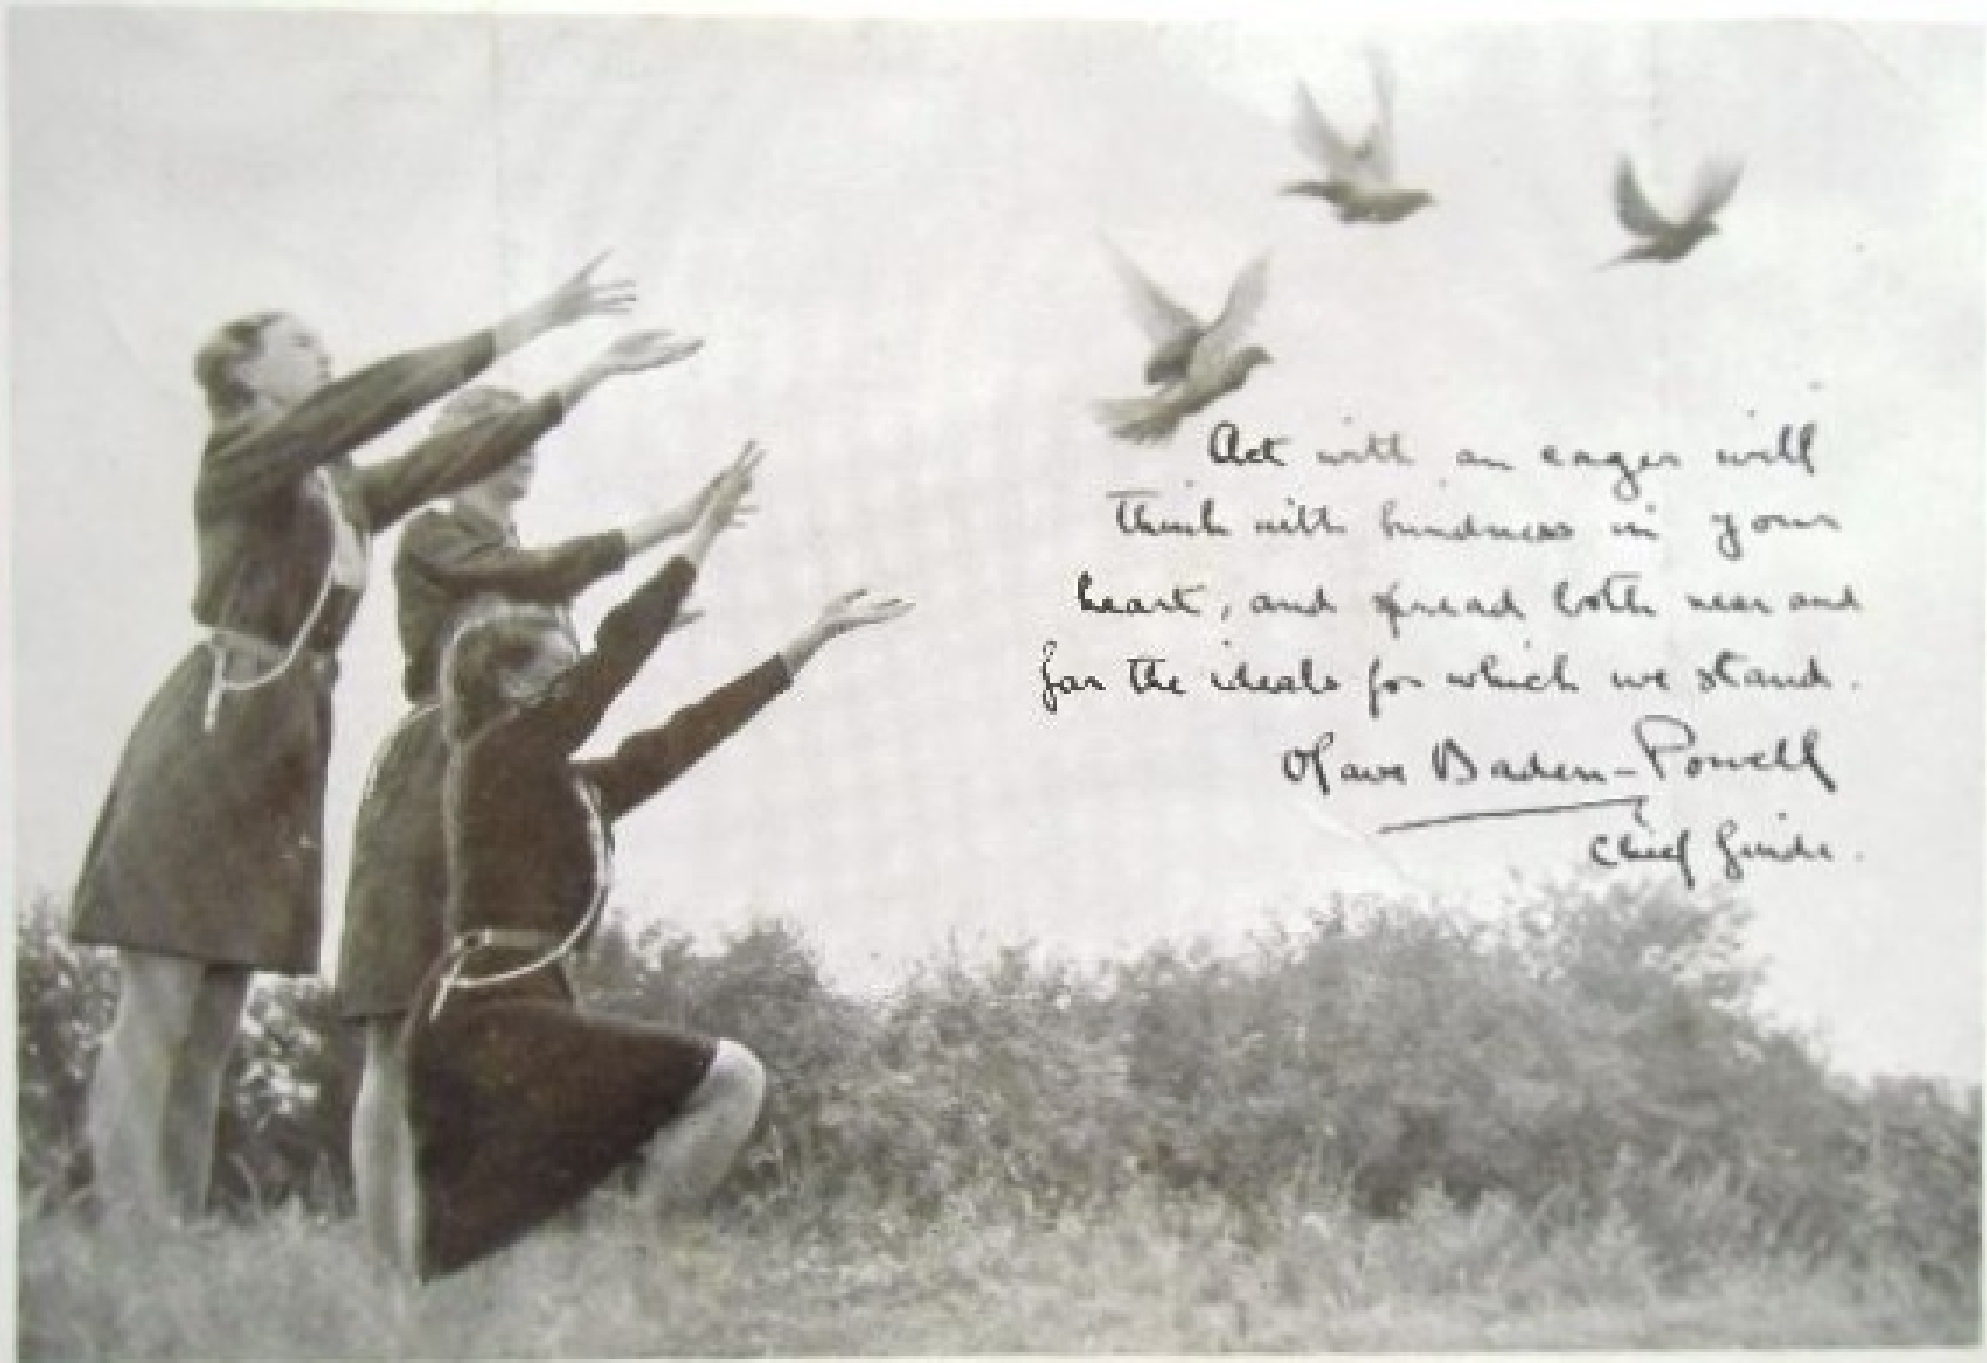 Act with an eager will
think with kindness in your
heart, and spread both near and
far the ideals for which we stand.
Olave Baden-Powell
Chief Guide.